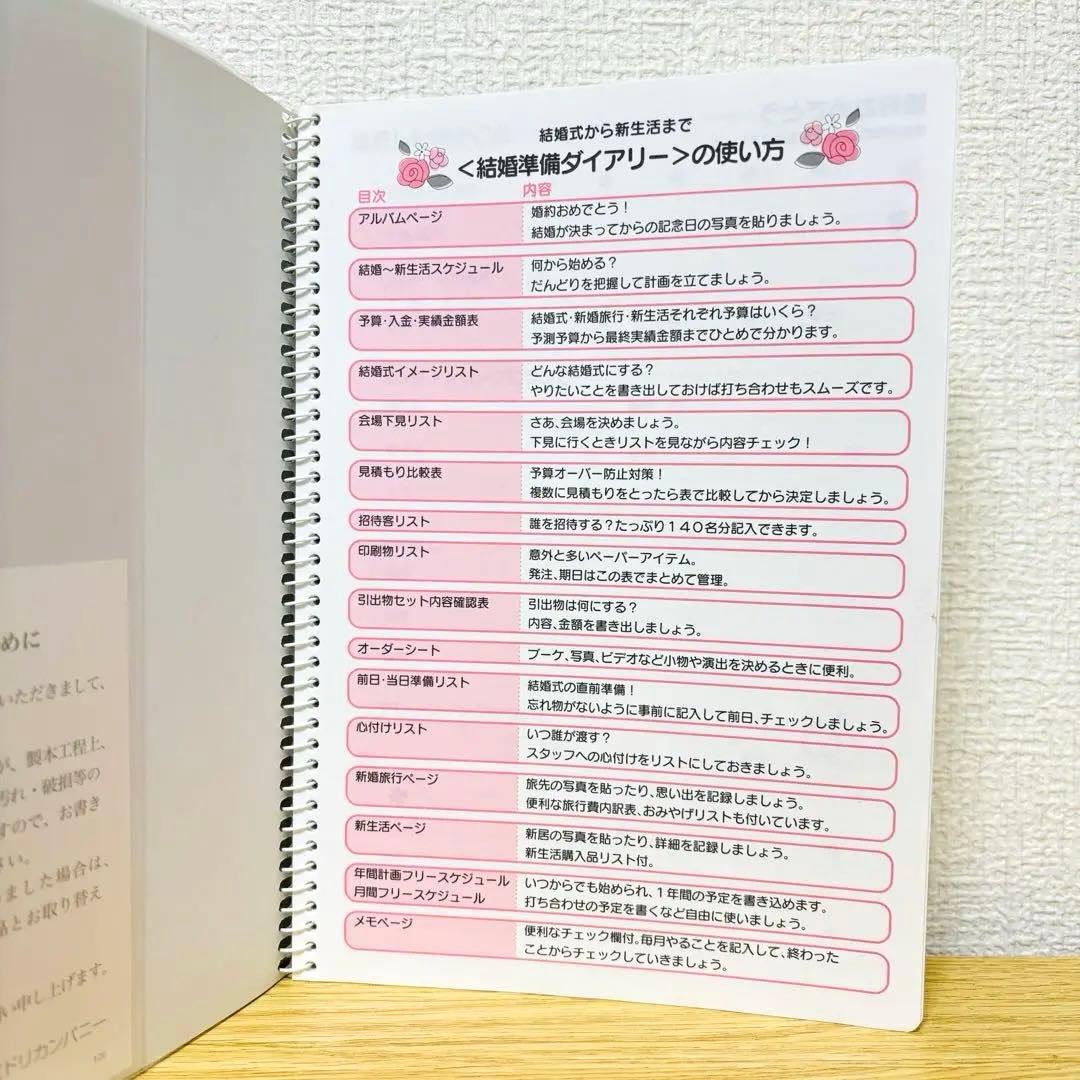 めに
いただきまして、
が、製本工程上、
汚れ・破損等の
すので、お書き
さい。
ました場合は、
品とお取り替え
い申し上げます。
ミドリカンパニー
結婚式から新生活まで
<結婚準備ダイアリー>の使い方
目次 内容
アルバムページ
婚約おめでとう!
結婚が決まってからの記念日の写真を貼りましょう。
結婚～新生活スケジュール
何から始める?
だんどりを把握して計画を立てましょう。
予算・入金・実績金額表
結婚式・新婚旅行・新生活それぞれ予算はいくら?
予測予算から最終実績金額までひとめで分かります。
結婚式イメージリスト
どんな結婚式にする?
やりたいことを書き出しておけば打ち合わせもスムーズです。
会場下見リスト
さあ、会場を決めましょう。
下見に行くときリストを見ながら内容チェック!
見積もり比較表
予算オーバー防止対策!
複数に見積もりをとったら表で比較してから決定しましょう。
招待客リスト
誰を招待する?たっぷり140名分記入できます。
印刷物リスト
意外と多いペーパーアイテム。
発注、期日はこの表でまとめて管理。
引出物セット内容確認表
引出物は何にする?
内容、金額を書き出しましょう。
オーダーシート
ブーケ、写真、ビデオなど小物や演出を決めるときに便利。
前日・当日準備リスト
結婚式の直前準備!
忘れ物がないように事前に記入して前日、チェックしましょう。
心付けリスト
いつ誰が渡す?
スタッフへの心付けをリストにしておきましょう。
新婚旅行ページ
旅先の写真を貼ったり、思い出を記録しましょう。
便利な旅行費内訳表、おみやげリストも付いています。
新生活ページ
新居の写真を貼ったり、詳細を記録しましょう。
新生活購入品リスト付。
年間計画フリースケジュール
月間フリースケジュール
いつからでも始められ、1年間の予定を書き込めます。
打ち合わせの予定を書くなど自由に使いましょう。
メモページ
便利なチェック欄付。毎月やることを記入して、終わった
ことからチェックしていきましょう。